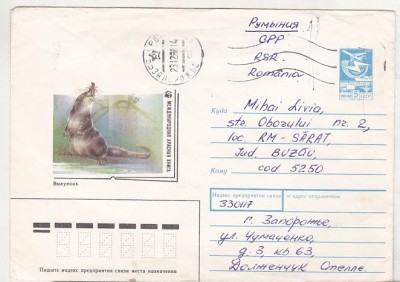 Румыния
СРР
RSR
România
Куда Mihai Livia,
str. Oborului nr. 2,
loc. RM-SĂRAT,
Jud. BUZĂU,
Кому cod 5250
МЕЖДУНАРОДНАЯ КРАСНАЯ КНИГА
Выхухоль
Индекс предприятия связи и адрес отправителя
330117
г. Запорожье,
ул. Чумаченко,
д. 3, кв 63,
Долженчук Стелле.
Пишите индекс предприятия связи места назначения